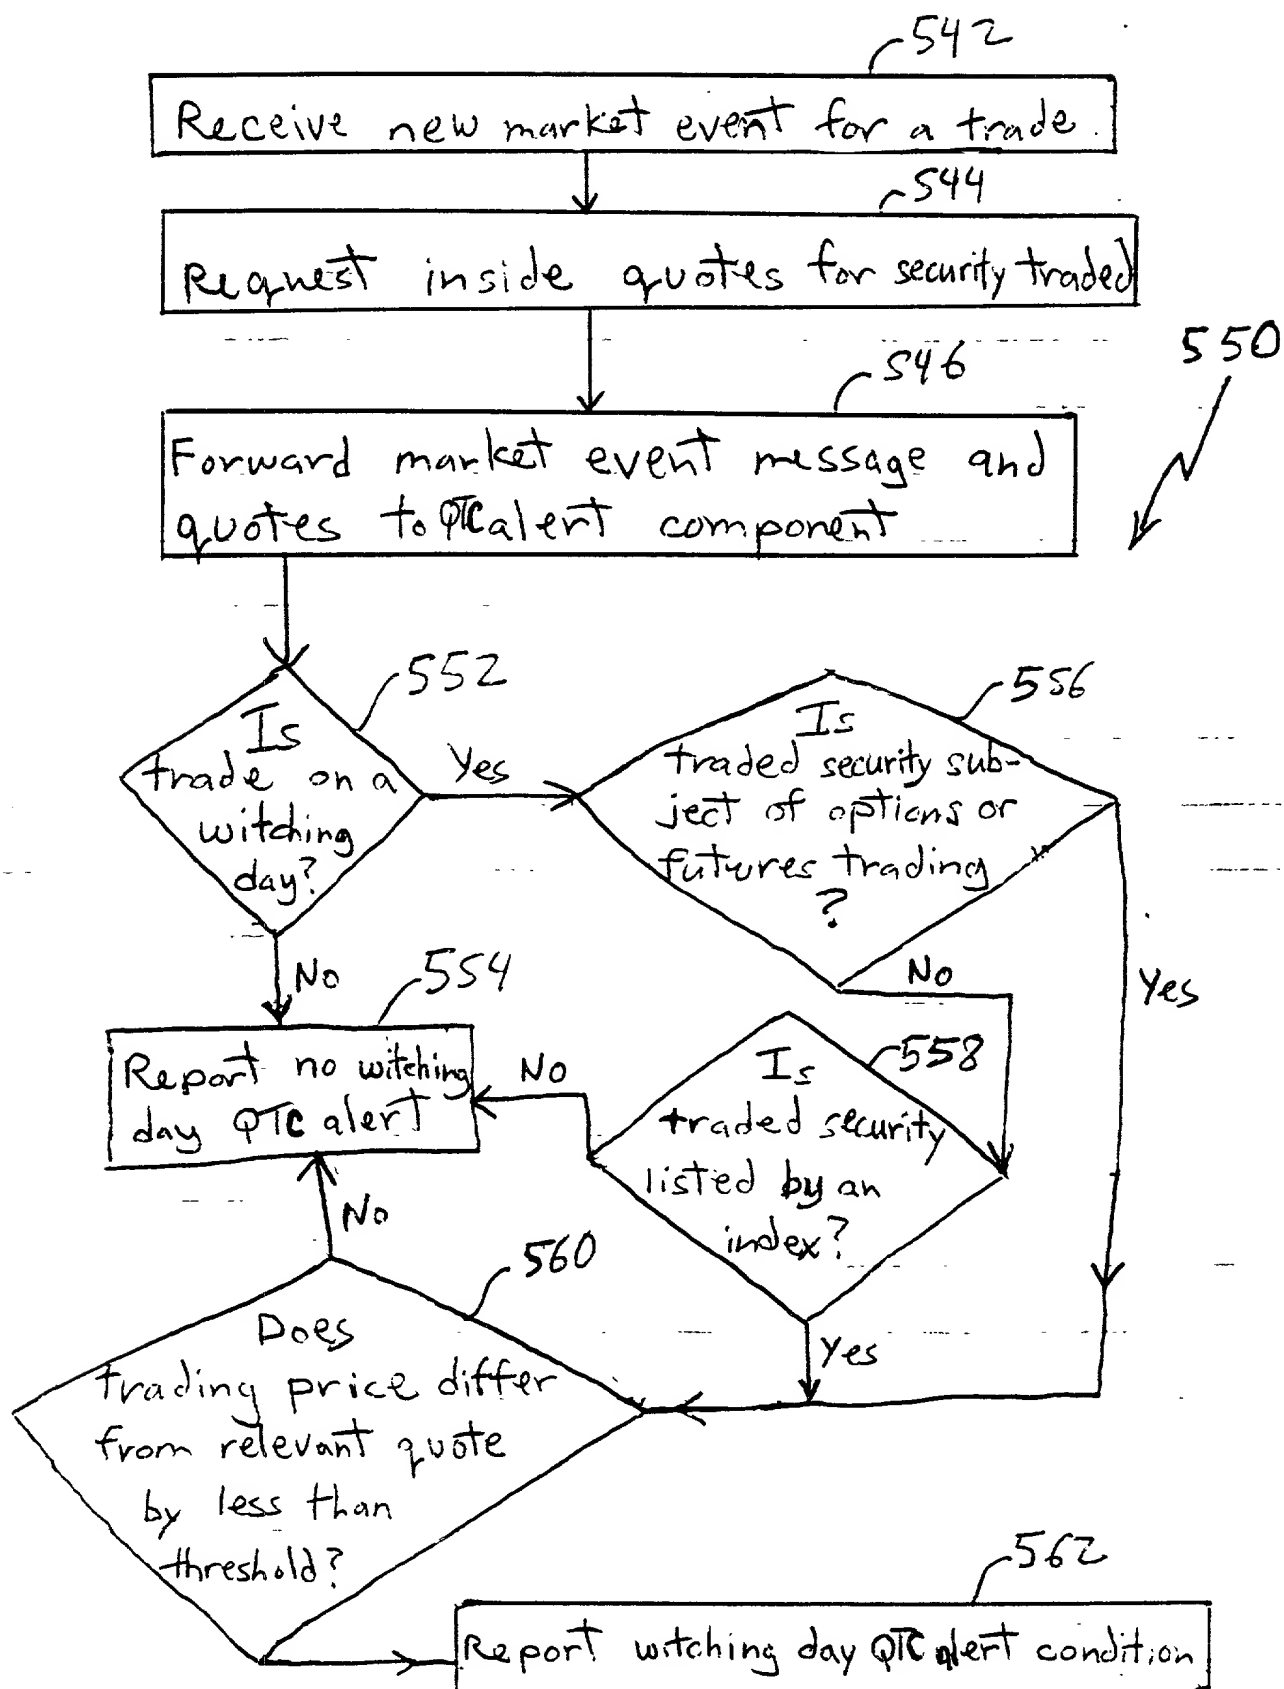 542
Receive new market event for a trade
544
Request inside quotes for security traded
550
546
Forward market event message and
quotes to QTC alert component
552
Is
trade on a
witching
day?
Yes
No
556
Is
traded security sub-
ject of options or
futures trading
?
No
Yes
554
Report no witching
day QTC alert
No
558
Is
traded security
listed by an
index?
Yes
No
560
Does
trading price differ
from relevant quote
by less than
threshold?
562
Report witching day QTC alert condition